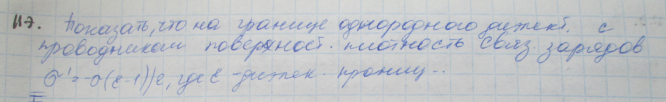 117. Показать, что на границе однородного диэлект. с
проводником поверхност. плотность связ. зарядов
σ' = -σ(ε-1)/ε, где ε - диэлек. прониц..